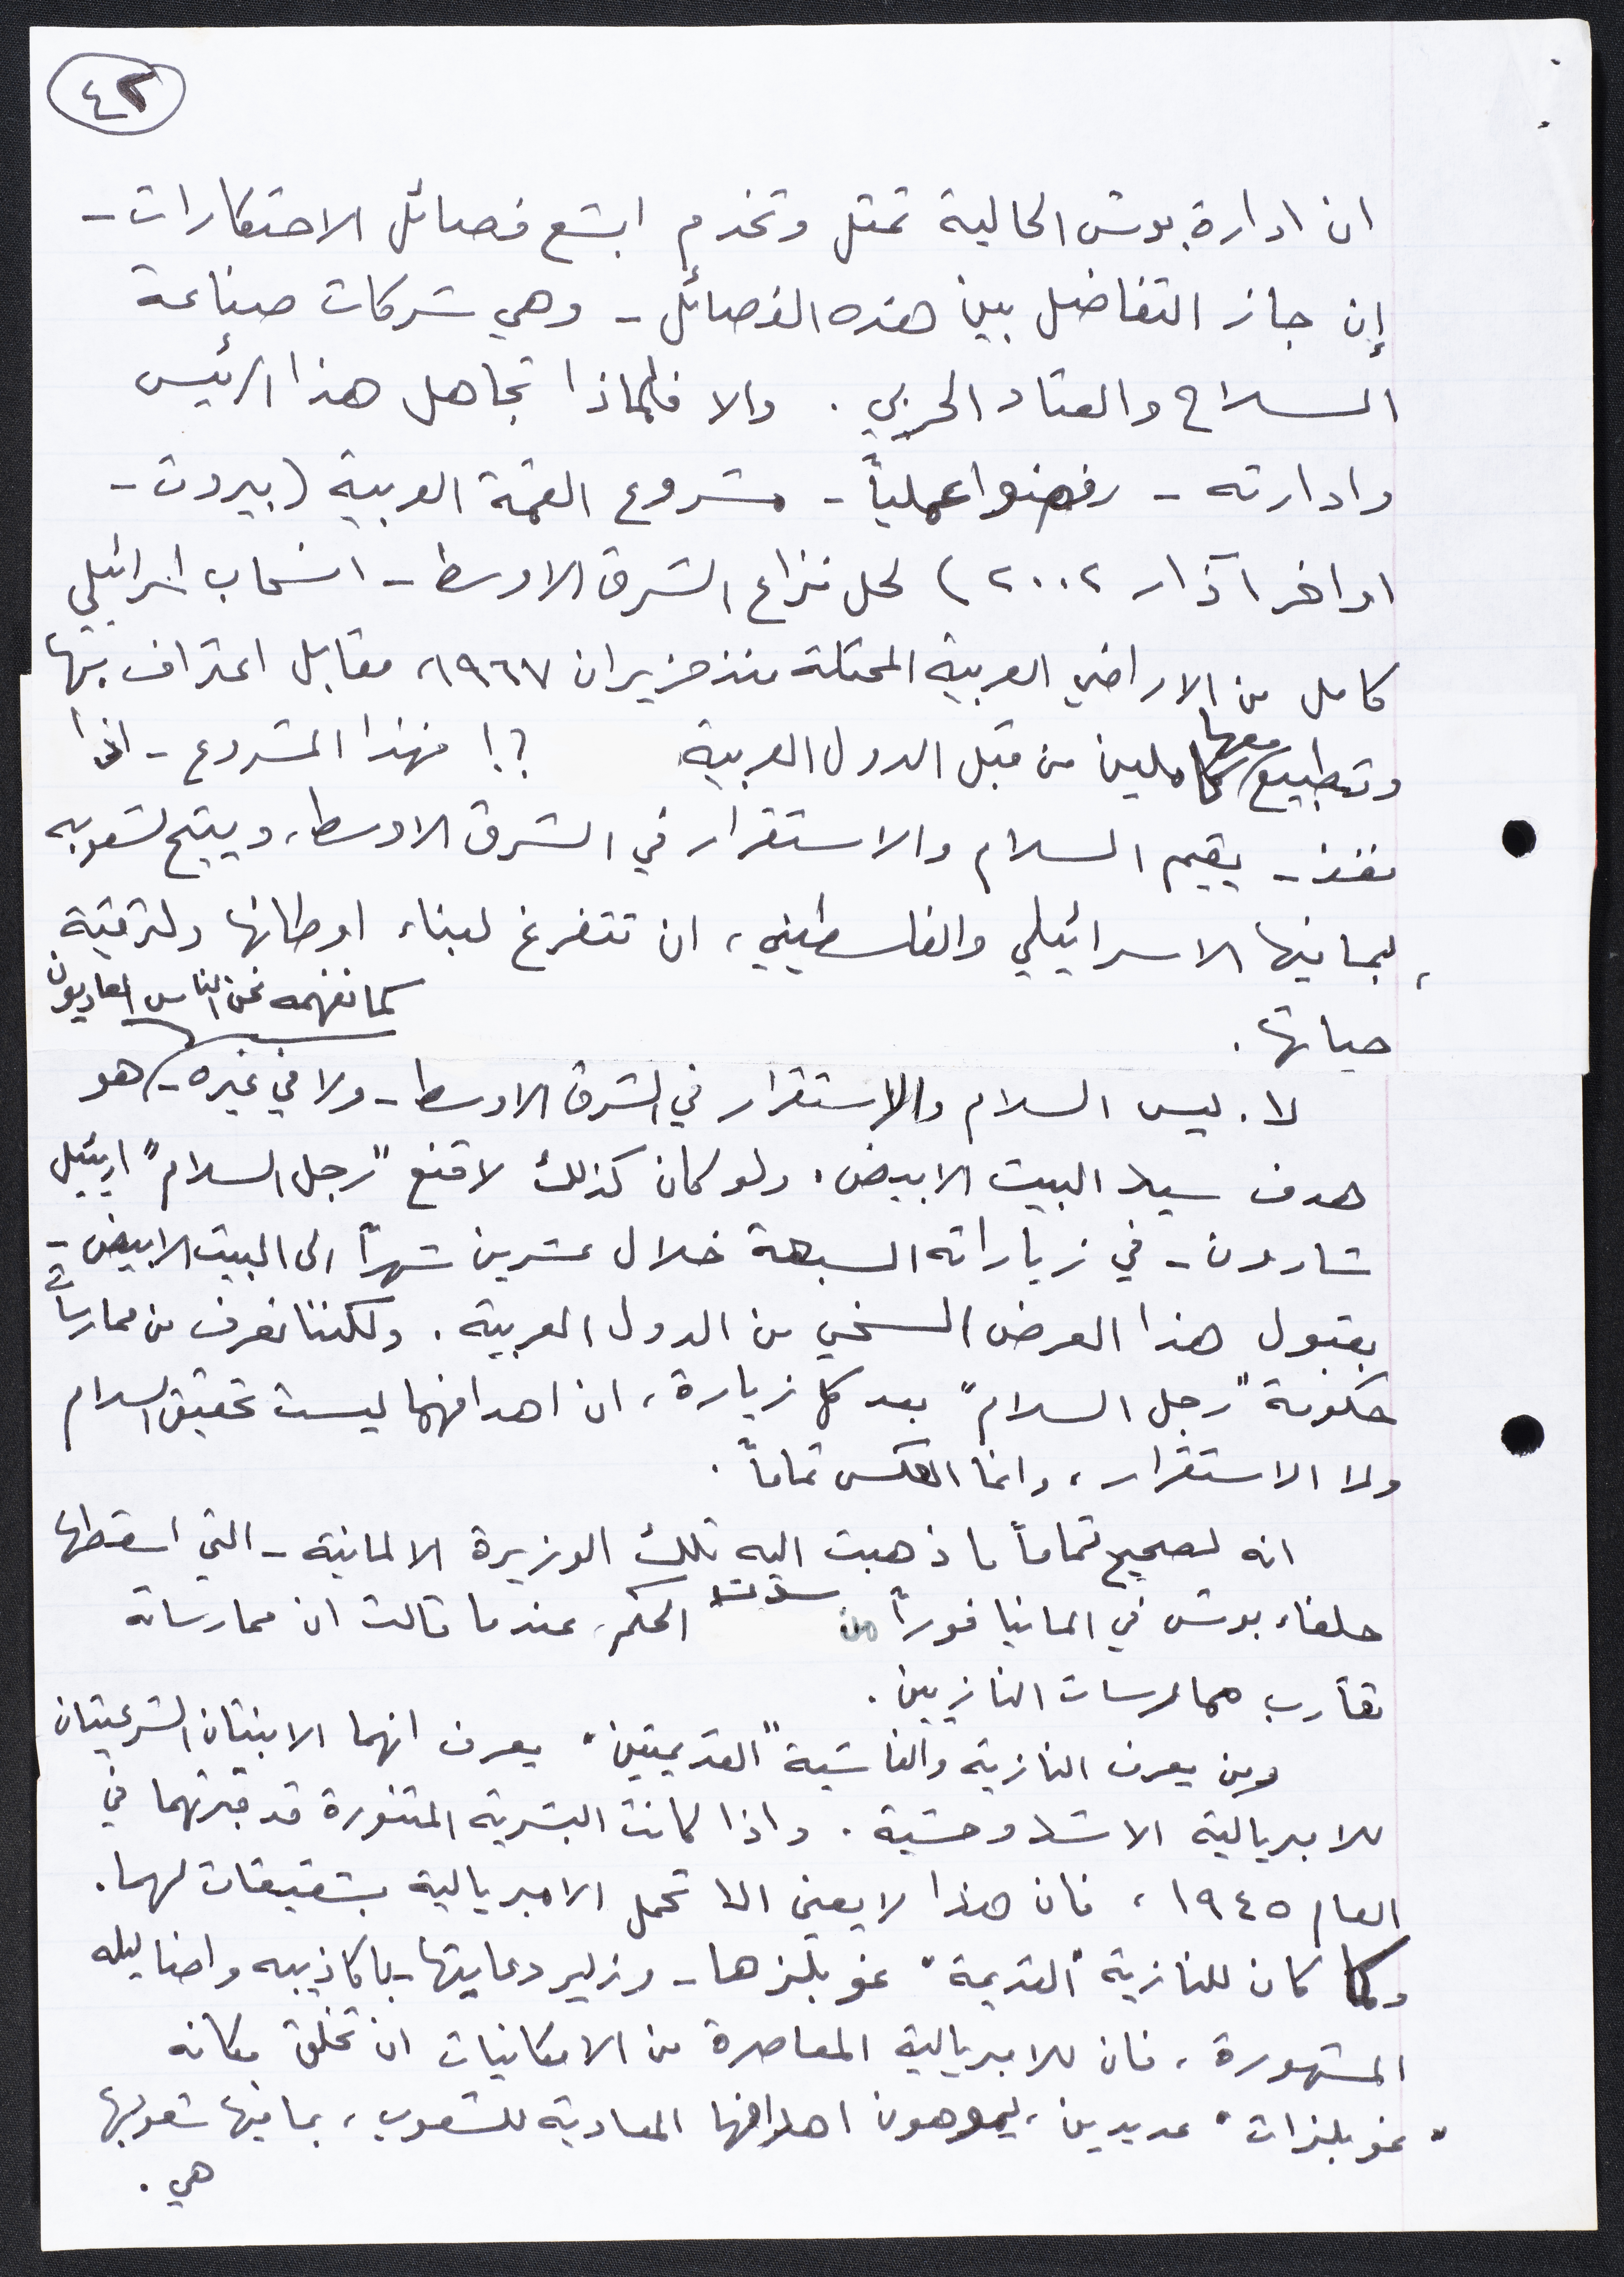 ٤٢
ان ادارة بوش الحالية تمثل وتخدم ابشع فصائل الاحتكارات -
إن جاز التفاضل بين هذه الفصائل - وهي شركات صناعة
السلاح والعتاد الحربي . والا فلماذا تجاهل هذا الرئيس
وادارته - رفضوا عملياً - مشروع القمة العربية (بيروت -
اواخر آذار ٢٠٠٢) لحل نزاع الشرق الاوسط - انسحاب اسرائيلي
كامل من الاراضي العربية المحتلة منذ حزيران ١٩٦٧، مقابل اعتراف بها
وتطبيع معها كاملين من قبل الدول العربية ؟! فهذا المشروع - اذا
نفذ - يقيم السلام والاستقرار في الشرق الاوسط، ويتيح لشعوبه
، بما فيها الاسرائيلي والفلسطيني، ان تتفرغ لبناء اوطانها ولترقية
حياتها .
لا. ليس السلام والاستقرار في الشرق الاوسط - ولا في غيره - كما نفهمه نحن الناس العاديون هو
هدف سيد البيت الابيض. ولو كان كذلك لاقنع "رجل السلام" اريئيل
شارون - في زياراته السبعة خلال عشرين شهراً الى البيت الابيض -
بقبول هذا العرض السخي من الدول العربية. ولكننا نعرف من ممارسات
حكومة "رجل السلام" بعد كل زيارة، ان اهدافهما ليست تحقيق السلام
ولا الاستقرار، وانما العكس تماماً .
انه لصحيح تماماً ما ذهبت اليه تلك الوزيرة الالمانية - التي اسقطها
حلفاء بوش في المانيا فوراً من سدة الحكم، عندما قالت ان ممارساته
تقارب ممارسات النازيين .
ومن يعرف النازية والفاشية "القديمتين" يعرف انهما الابنتان الشرعيتان
للامبريالية الاشد وحشية . واذا كانت البشرية المتنورة قد قبرتهما في
العام ١٩٤٥، فان هذا لا يعني الا تحمل الامبريالية بشقيقات لهما.
وكما كان للنازية "القديمة" غوبلزها - وزير دعايتها - باكاذيبه واضاليله
المشهورة، فان للامبريالية المعاصرة من الامكانيات ان تخلق مكانه
"غوبلزات" عديدين، يموهون اهدافها المعادية للشعوب، بما فيها شعوبها
هي .